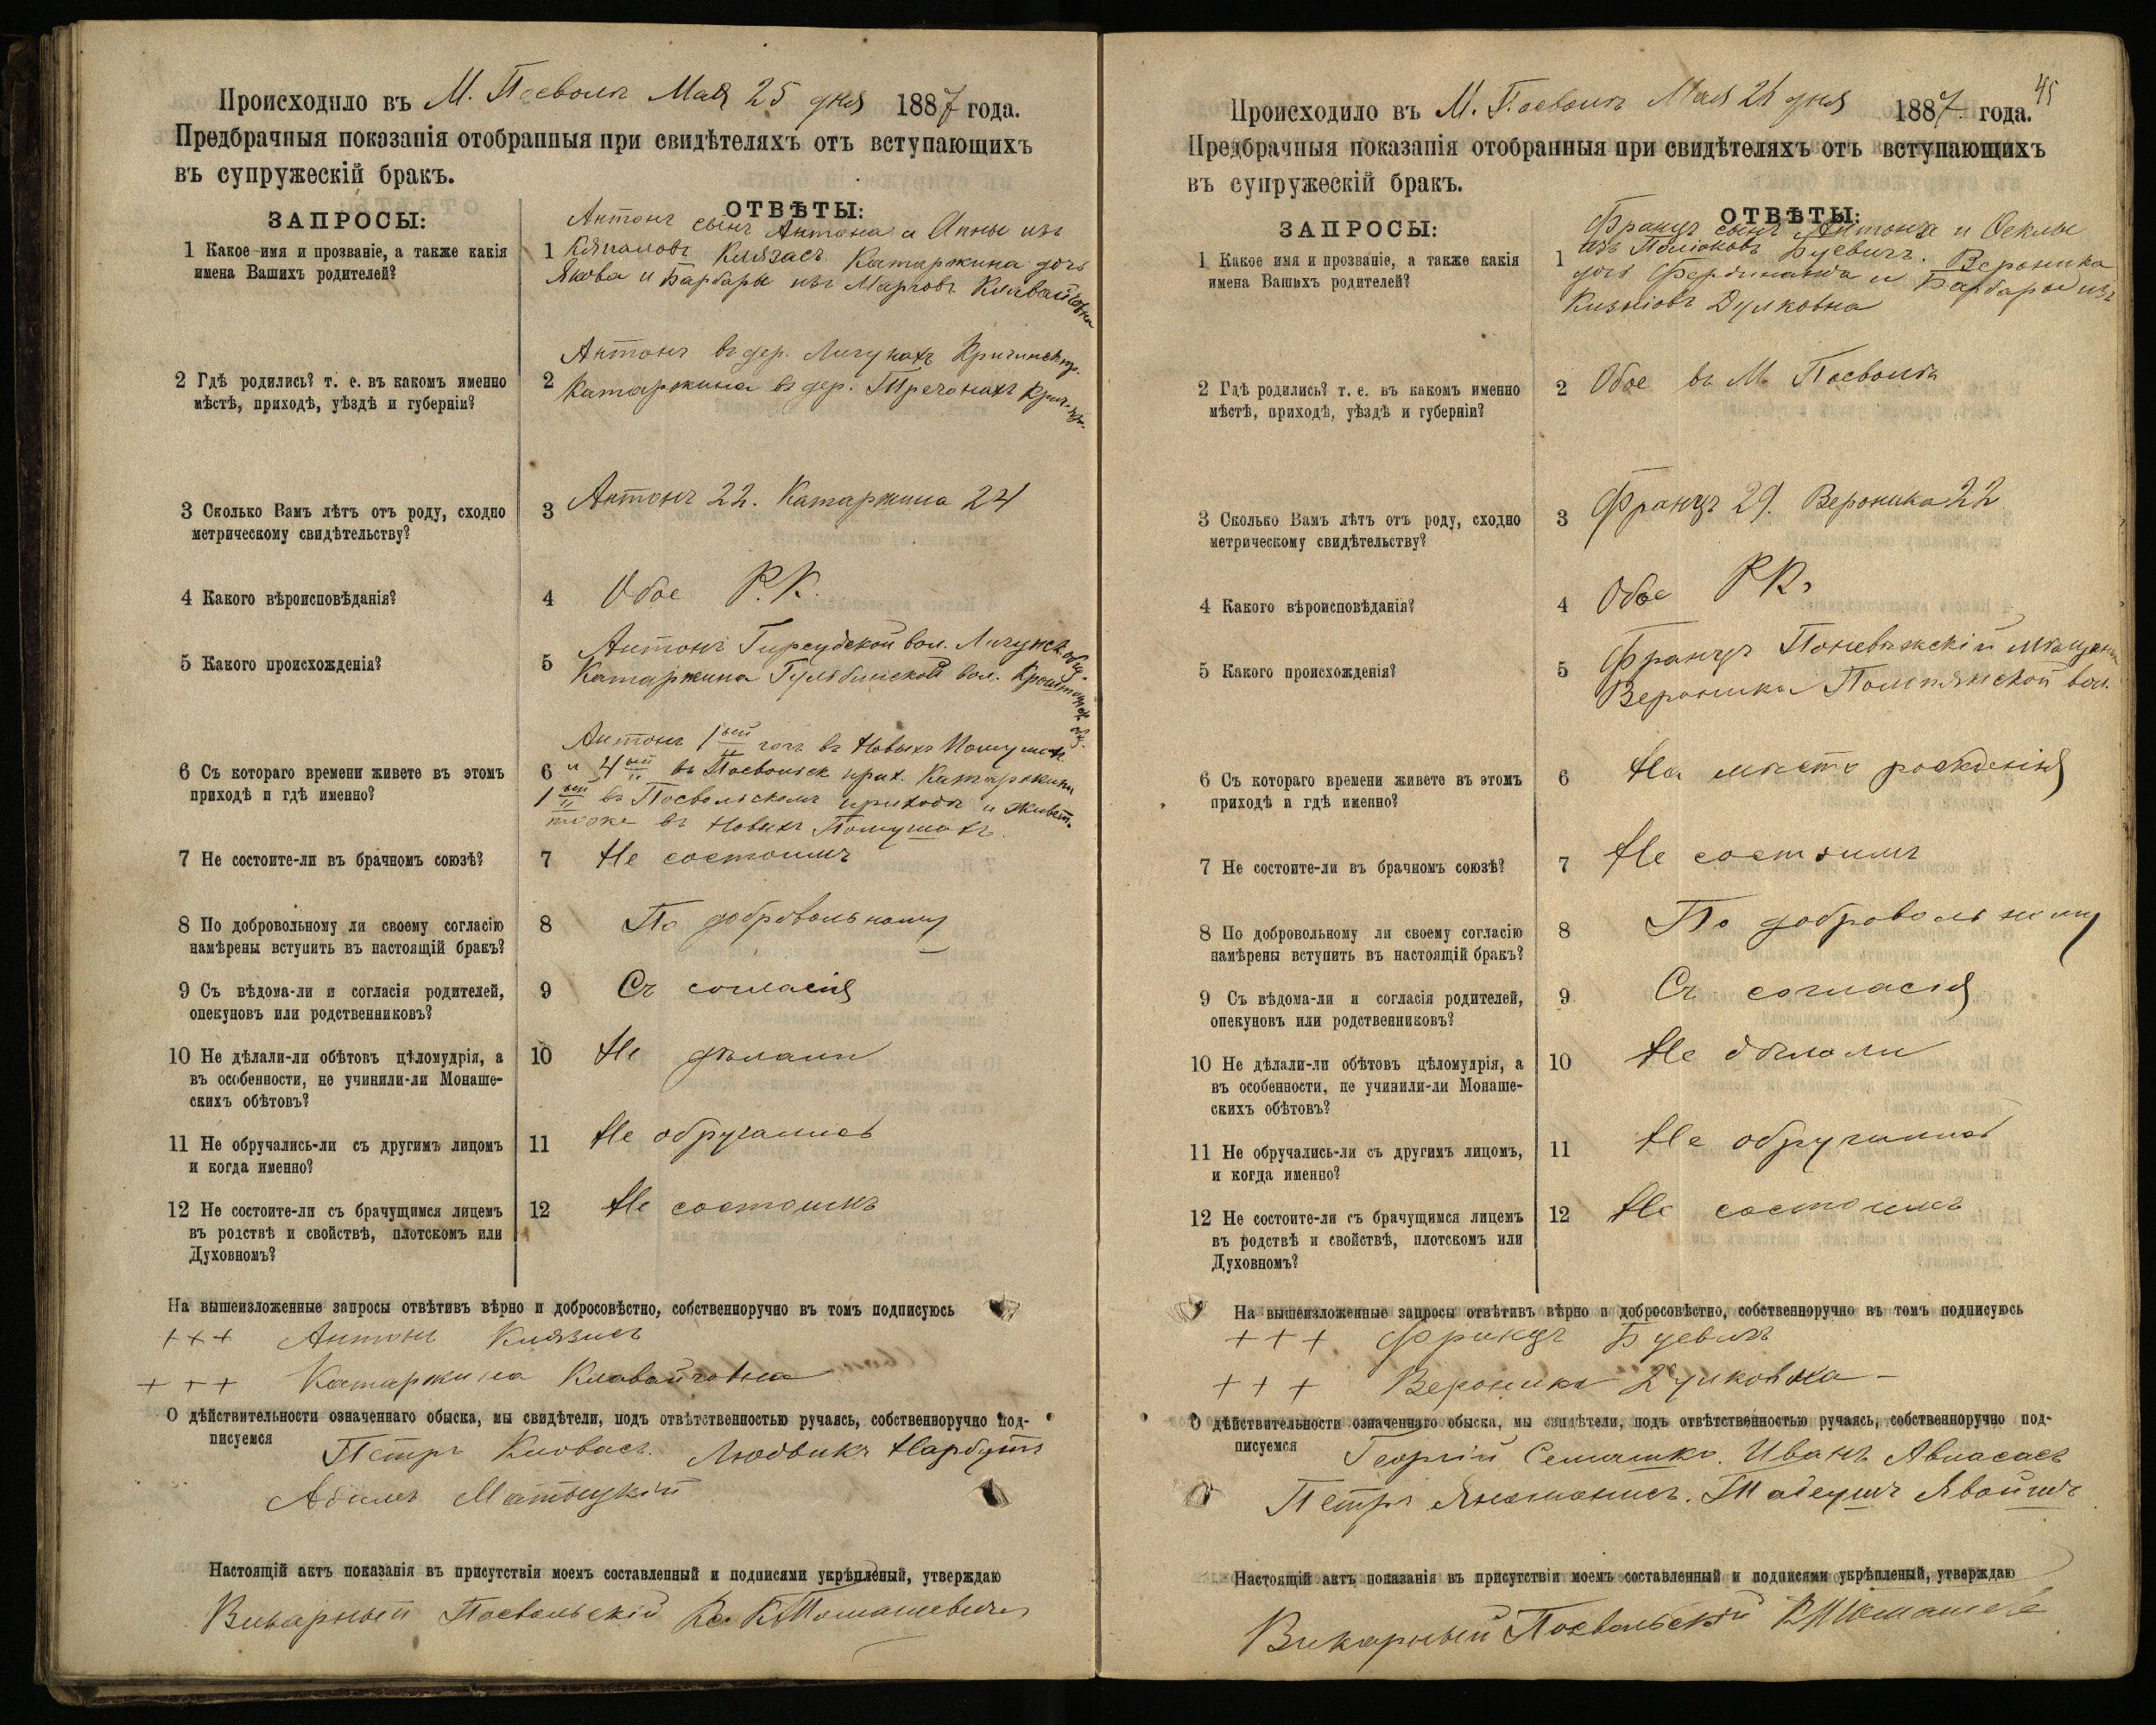 Происходило въ М. Посволь Мая 25 дня 1887 года.
Предбрачныя показанія отобранныя при свидѣтеляхъ отъ вступающихъ
въ супружескій бракъ.
ЗАПРОСЫ:
ОТВѢТЫ:
1 Какое имя и прозваніе, а также какія
имена Вашихъ родителей?
1 Антонъ сынъ Антона и Анны изъ
Князасъ Катаржина дочь
Якова и Барбары изъ
2 Гдѣ родились? т. е. въ какомъ именно
мѣстѣ, приходѣ, уѣздѣ и губерніи?
2 Антонъ въ дер.
Катаржина въ дер.
3 Сколько Вамъ лѣтъ отъ роду, сходно
метрическому свидѣтельству?
3 Антонъ 22. Катаржина 24
4 Какого вѣроисповѣданія?
4 Обое Р.К.
5 Какого происхожденія?
5 Антонъ вол.
Катаржина вол.
6 Съ котораго времени живете въ этомъ
приходѣ и гдѣ именно?
6 Антонъ 1ый годъ въ Новыхъ
и 4ый въ Посвольск прих. Катаржина
1ый въ Посвольскомъ приходѣ и живет.
тоже въ Новыхъ
7 Не состоите-ли въ брачномъ союзѣ?
7 Не состоимъ
8 По добровольному ли своему согласію
намѣрены вступить въ настоящій бракъ?
8 По добровольному
9 Съ вѣдома-ли и согласія родителей,
опекуновъ или родственниковъ?
9 Съ согласія
10 Не дѣлали-ли обѣтовъ цѣломудрія, а
въ особенности, не учинили-ли Монаше-
скихъ обѣтовъ?
10 Не дѣлали
11 Не обручались-ли съ другимъ лицомъ
и когда именно?
11 Не обручались
12 Не состоите-ли съ брачущимся лицемъ
въ родствѣ и свойствѣ, плотскомъ или
Духовномъ?
12 Не состоимъ
На вышеизложенные запросы отвѣтивъ вѣрно и добросовѣстно, собственноручно въ томъ подписуюсь
+++ Антонъ Князисъ
+++ Катаржина
О дѣйствительности означеннаго обыска, мы свидѣтели, подъ отвѣтственностью ручаясь, собственноручно под-
писуемся
Петръ Людвикъ Нарбутъ
Настоящій актъ показанія въ присутствія моемъ составленный и подписями укрѣпленый, утверждаю
Викарный Посвольскій Кс. К Томашевичъ
45
Происходило въ М. Посволь Мая 26 дня 1887 года.
Предбрачныя показанія отобранныя при свидѣтеляхъ отъ вступающихъ
въ супружескій бракъ.
ЗАПРОСЫ:
ОТВѢТЫ:
1 Какое имя и прозваніе, а также какія
имена Вашихъ родителей?
1 Францъ сынъ Антона и Феклы
изъ Буевичъ. Вероника
дочь Фердинанда и Барбары изъ
Дулковна
2 Гдѣ родились? т. е. въ какомъ именно
мѣстѣ, приходѣ, уѣздѣ и губерніи?
2 Обое въ М. Посволѣ
3 Сколько Вамъ лѣтъ отъ роду, сходно
метрическому свидѣтельству?
3 Францъ 29. Вероника 22
4 Какого вѣроисповѣданія?
4 Обое РК.
5 Какого происхожденія?
5 Францъ Поневѣжскій мѣщанинъ
Вероника вол.
6 Съ котораго времени живете въ этомъ
приходѣ и гдѣ именно?
6 На мѣстѣ рожденія
7 Не состоите-ли въ брачномъ союзѣ?
7 Не состоимъ
8 По добровольному ли своему согласію
намѣрены вступить въ настоящій бракъ?
8 По добровольному
9 Съ вѣдома-ли и согласія родителей,
опекуновъ или родственниковъ?
9 Съ согласія
10 Не дѣлали-ли обѣтовъ цѣломудрія, а
въ особенности, не учинили-ли Монаше-
скихъ обѣтовъ?
10 Не дѣлали
11 Не обручались-ли съ другимъ лицомъ,
и когда именно?
11 Не обручались
12 Не состоите-ли съ брачущимся лицемъ
въ родствѣ и свойствѣ, плотскомъ или
Духовномъ?
12 Не состоимъ
На вышеизложенные запросы отвѣтивъ вѣрно и добросовѣстно, собственноручно въ томъ подписуюсь
+++ Францъ Буевичъ
+++ Вероника Дулковна
О дѣйствительности означеннаго обыска, мы свидѣтели, подъ отвѣтственностью ручаясь, собственноручно под-
писуемся
Георгій Семашко. Иванъ Авласасъ
Петръ Тадеушъ
Настоящій актъ показанія въ присутствія моемъ составленный и подписями укрѣпленый, утверждаю
Викарный Посвольскій